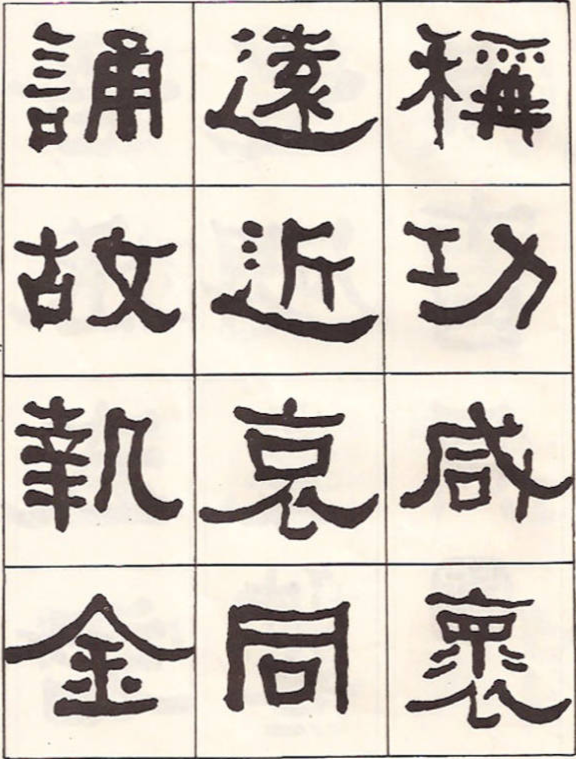 稱功咸褱
遠近哀同
誦故執金